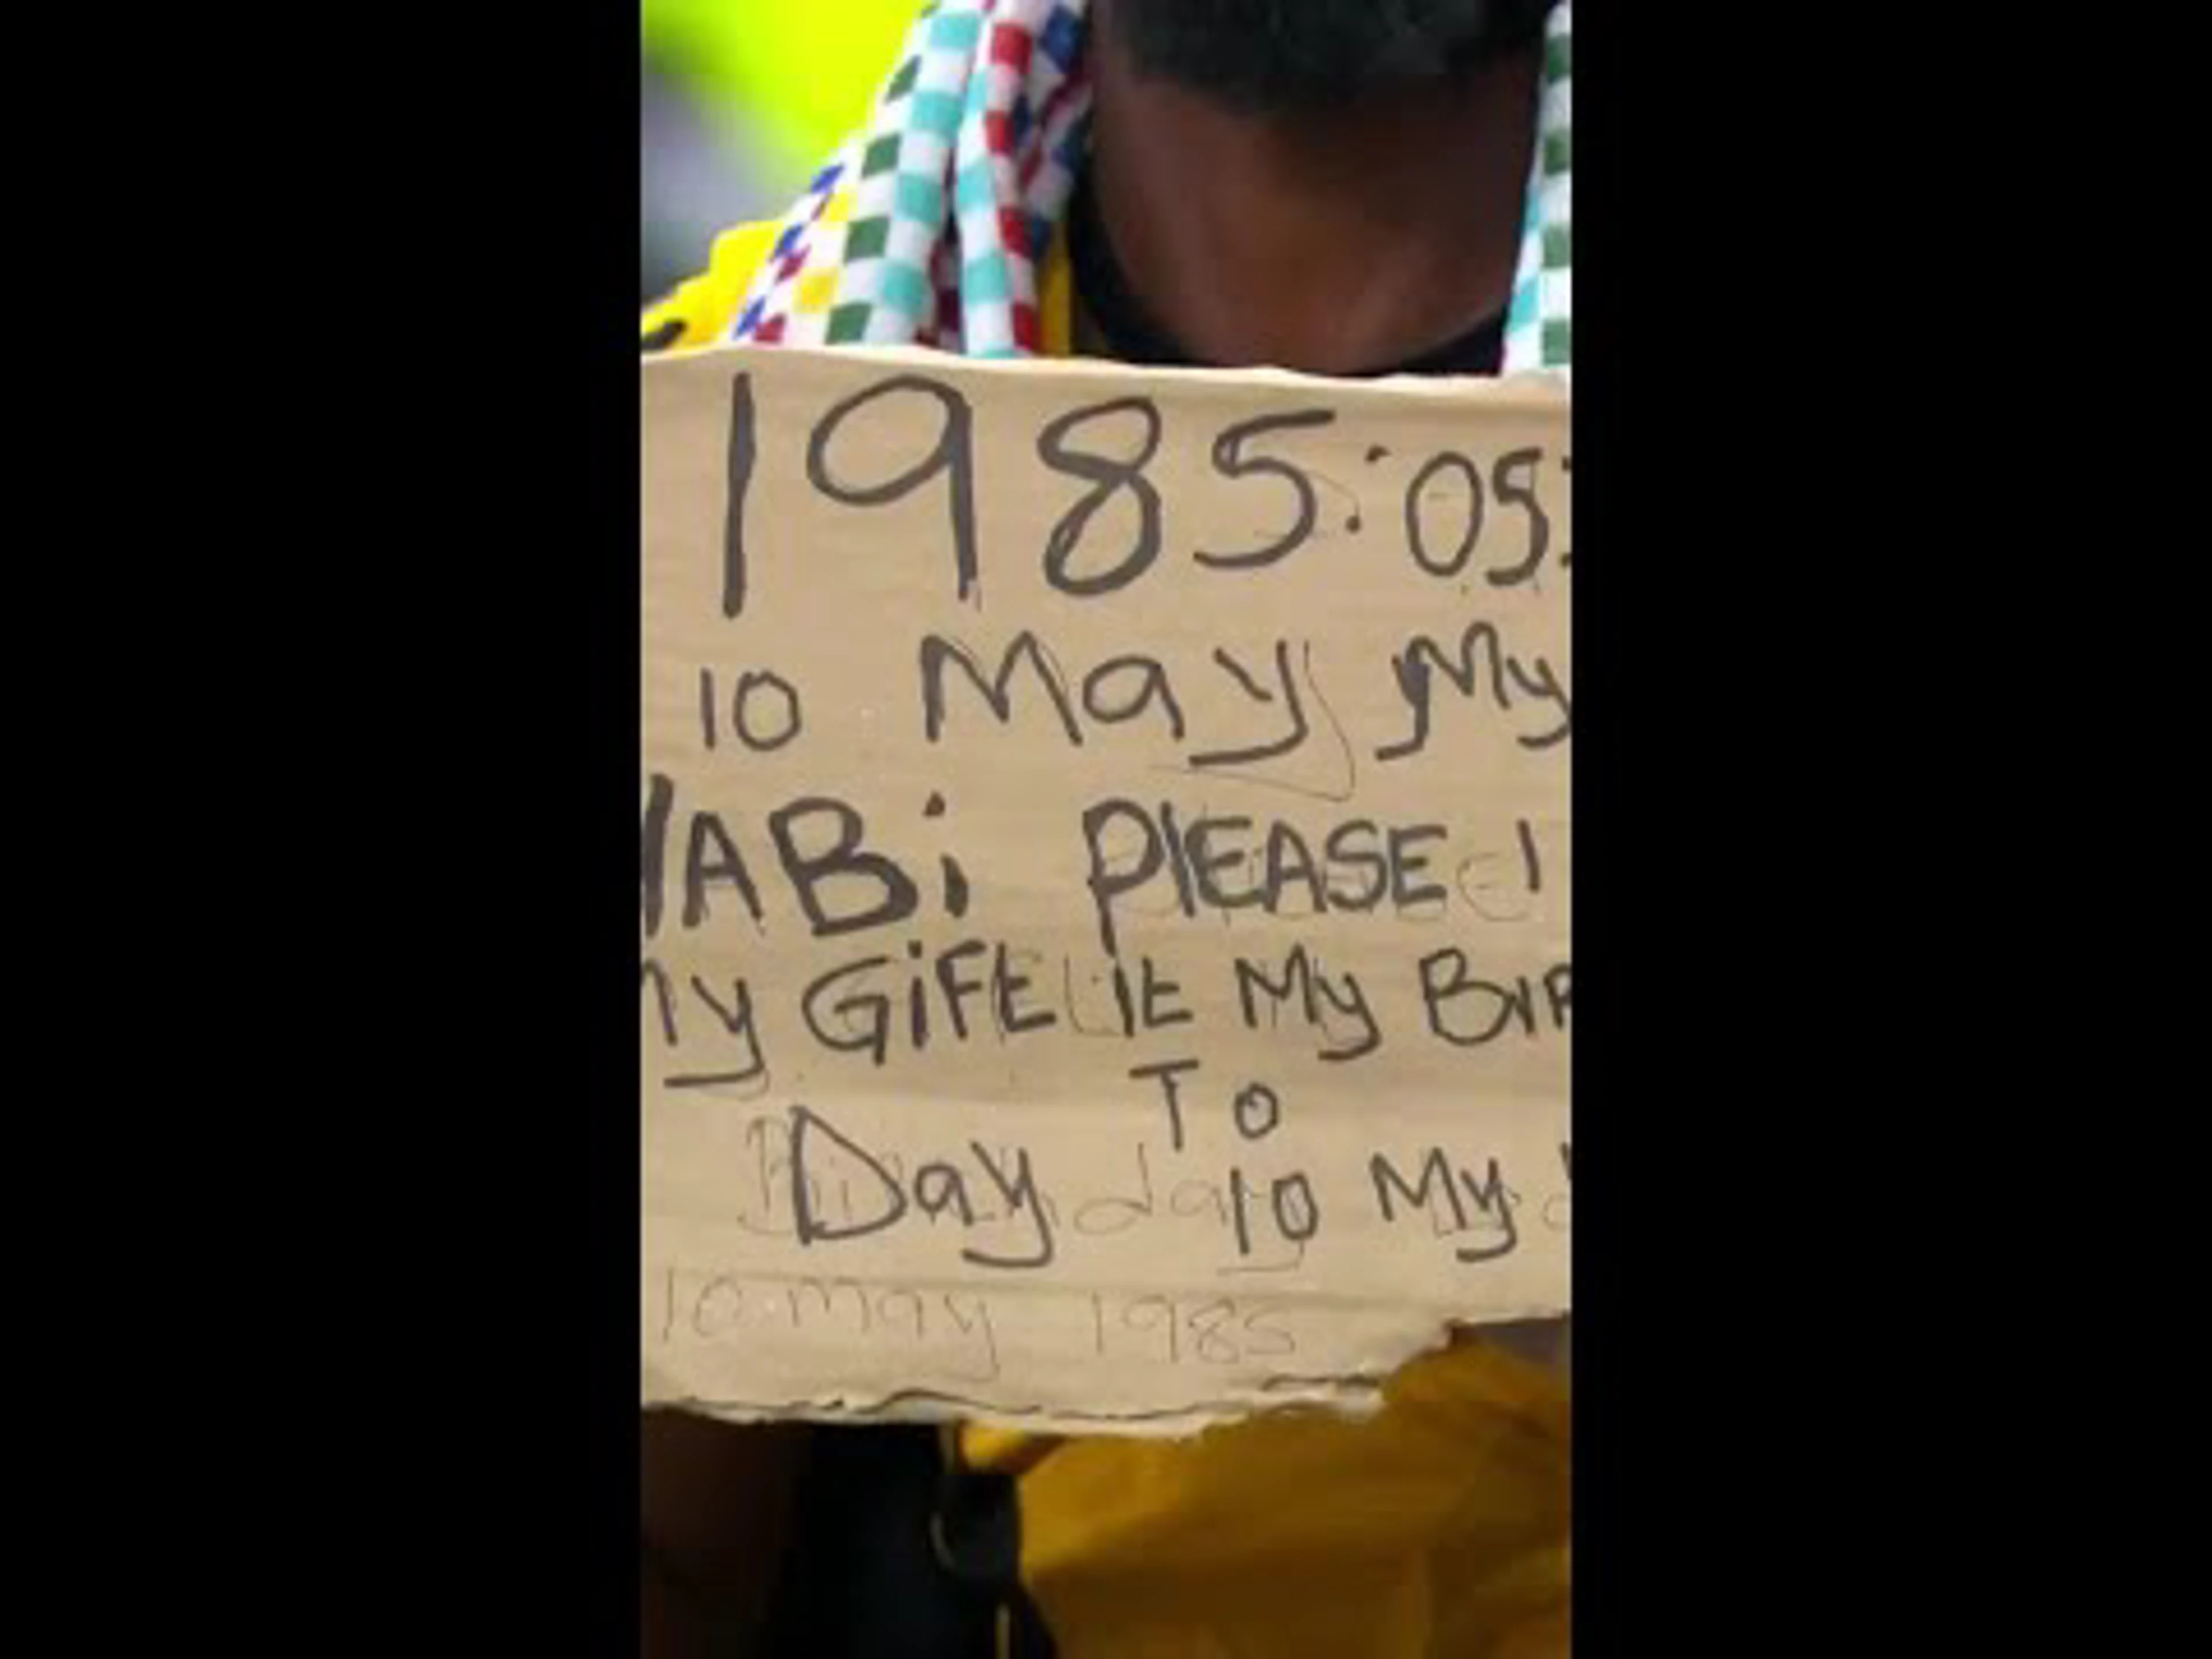 1985:05:
10 May My
ABi PlEASE I
My GiFt it My BIR
To
Day 10 My
10 may 1985